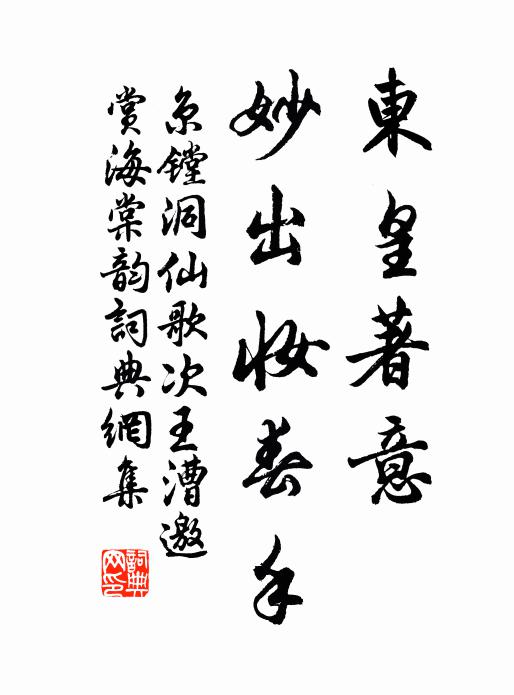 東皇著意
妙出妝春手
京鏜洞仙歌次王漕邀
賞海棠韵詞典網集
詞典网印